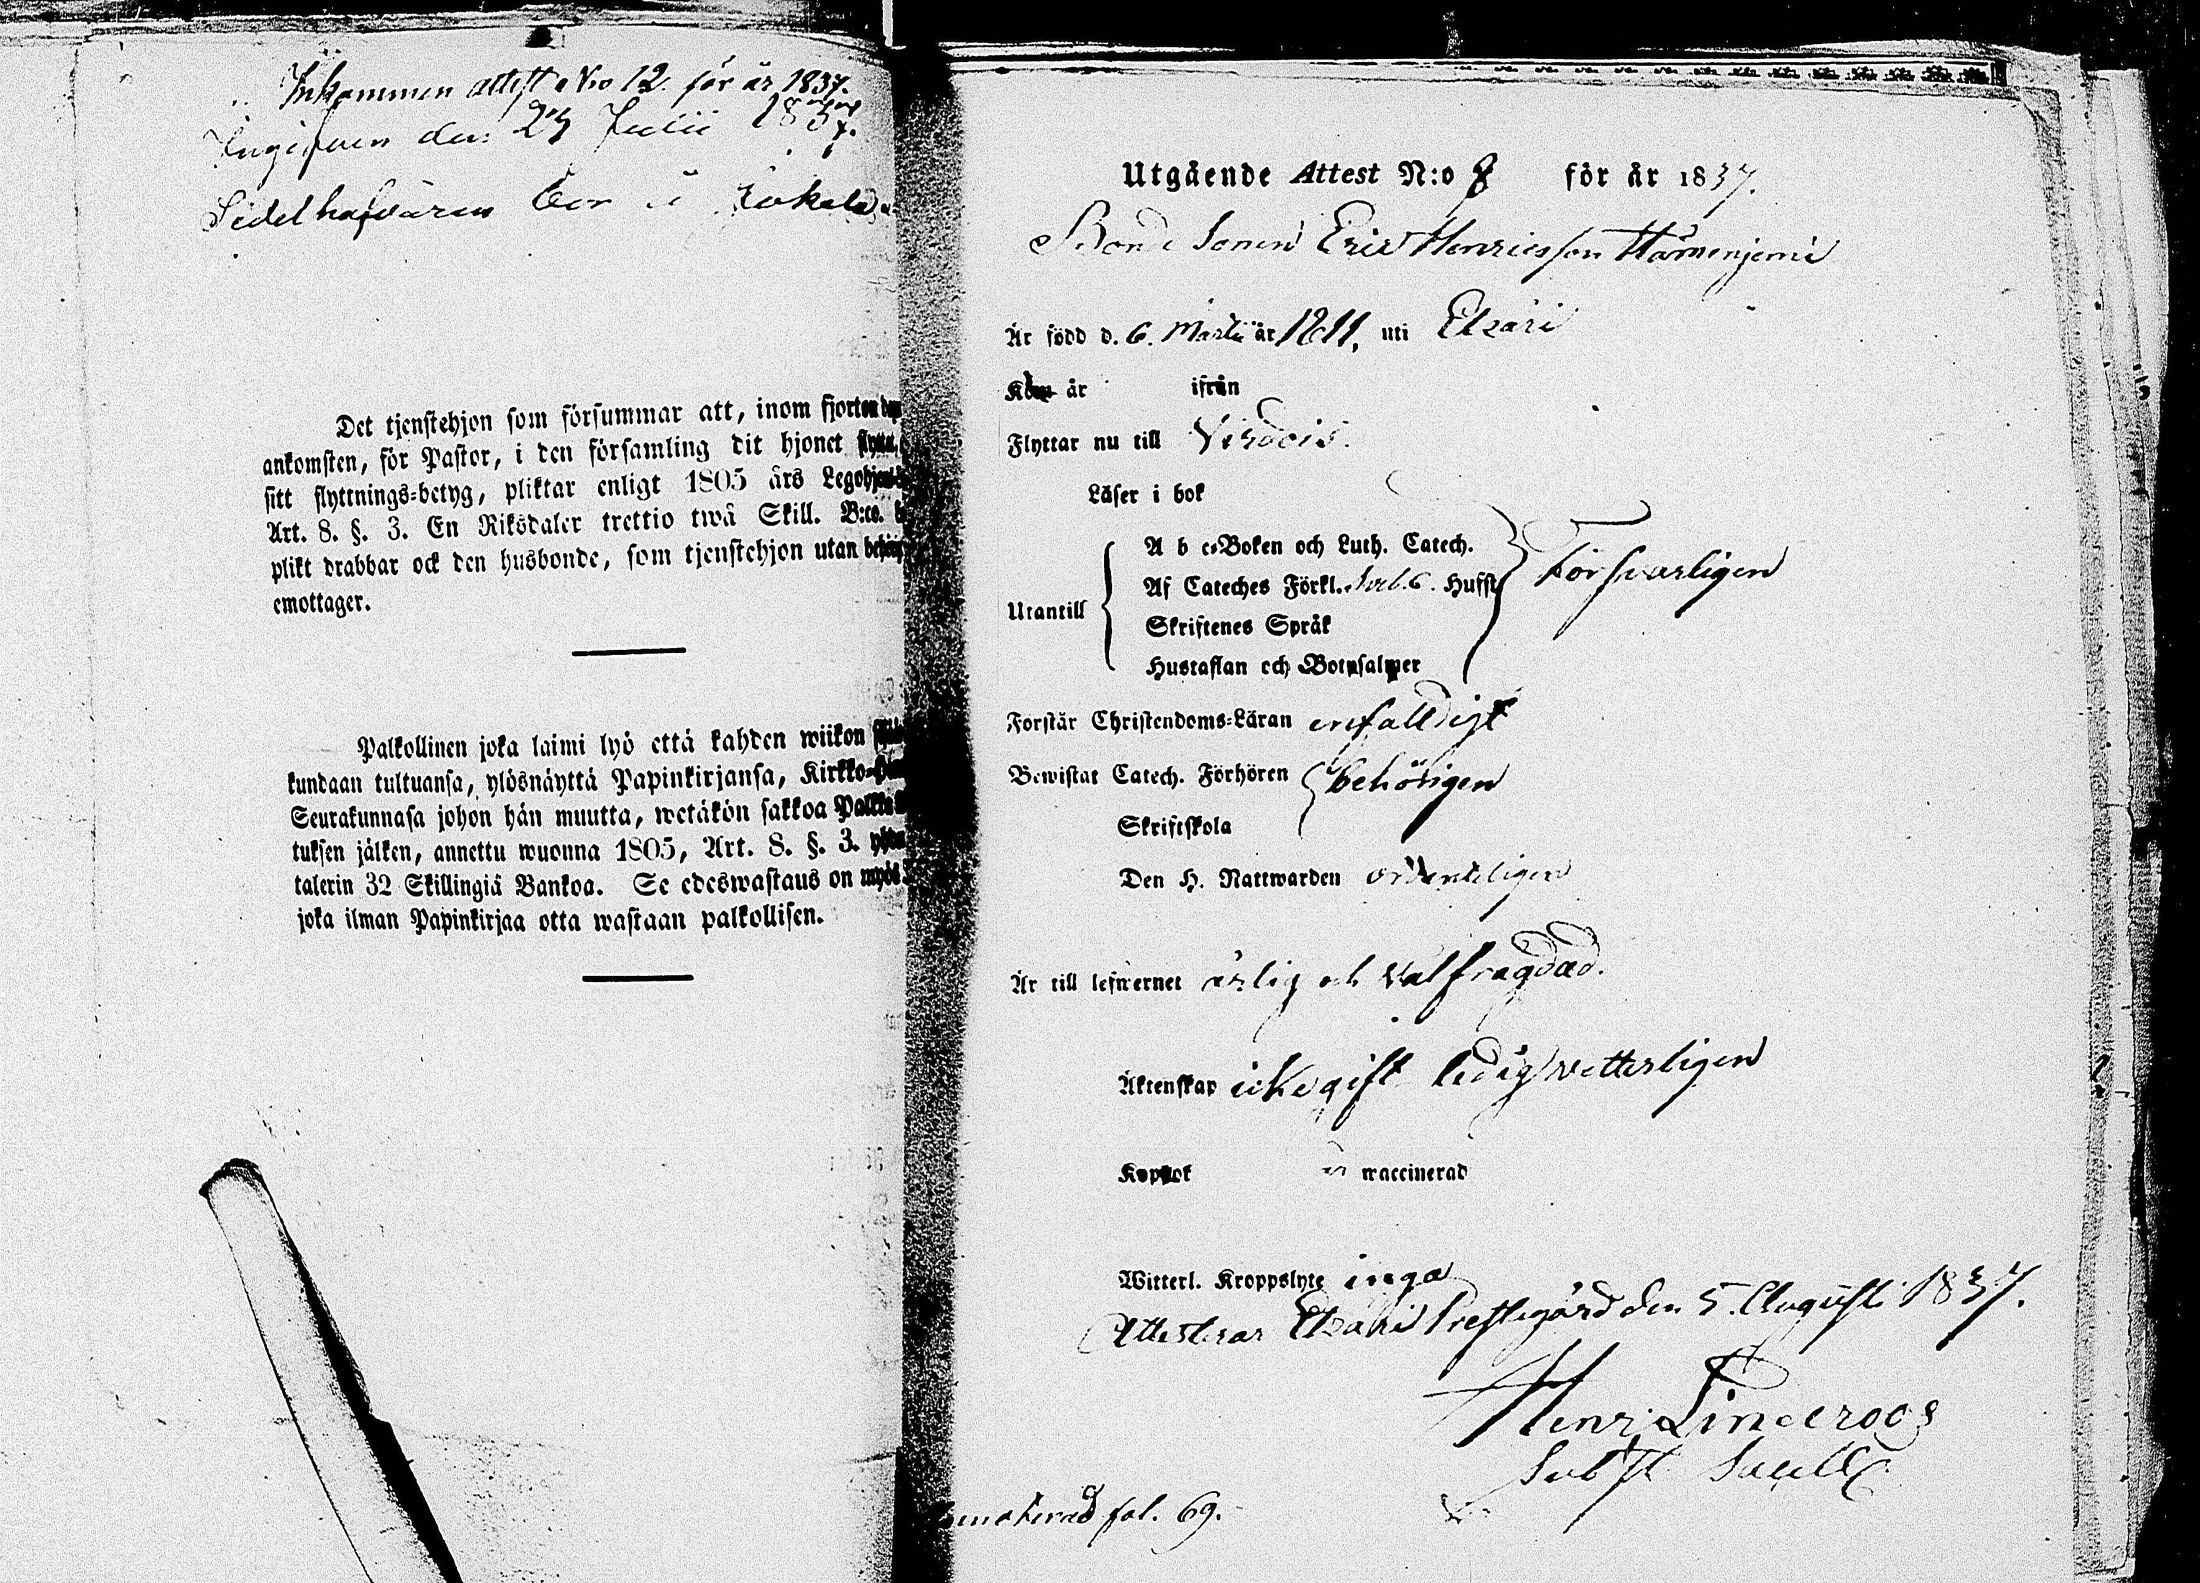 Inkommen attest Nro 12. för år 1837.
Ingifven den 29 Julii 1837.
Sedelhafvaren bor i
Det tjenstehjon som försummar att, inom fjorton
ankomsten, för Pastor, i den församling dit hjonet
sitt flyttnings-betyg, pliktar enligt 1805 års
Art. 8. §. 3. En Riksdaler trettio twå Skill. B:co.
plikt drabbar ock den husbonde, som tjenstehjon utan
emottager.
Palkollinen joka laimi lyö että kahden wiikon
kundaan tultuansa, ylösnäyttä Papinkirjansa,
Seurakunnasa johon hän muutta, wetäkön sakkoa
tuksen jälken, annettu wuonna 1805, Art. 8. §. 3.
talerin 32 Skillingiä Bankoa. Se edeswastaus on
joka ilman Papinkirjaa otta wastaan palkollisen.
Utgående Attest N:o 8 för år 1837.
Bonde Sonen Eric Henricsson
Är född d. 6. Martii år 1811, uti Etzäri
Kom år ifrån
Flyttar nu till Virdois.
Läser i bok
Utantill
A b c-Boken och Luth. Catech.
Af Cateches Förkl. Hufst
Skriftenes Språk
Hustaflan och Botpsalmer
Försvarligen
Forstår Christendoms-Läran enfalldigt
Bewistat Catech. Förhören behörigen
Skriftskola
Den H. Nattwarden ordenteligen
Är till lefwernet ärlig och välfrägdad.
Äktenskap icke gift ledig vetterligen
Koppok är waccinerad
Witterl. Kroppslyte inga
Attesterar Etzäri Prestegård den 5. Augusti 1837.
Henr. Linderoos
Subst
fol. 69.